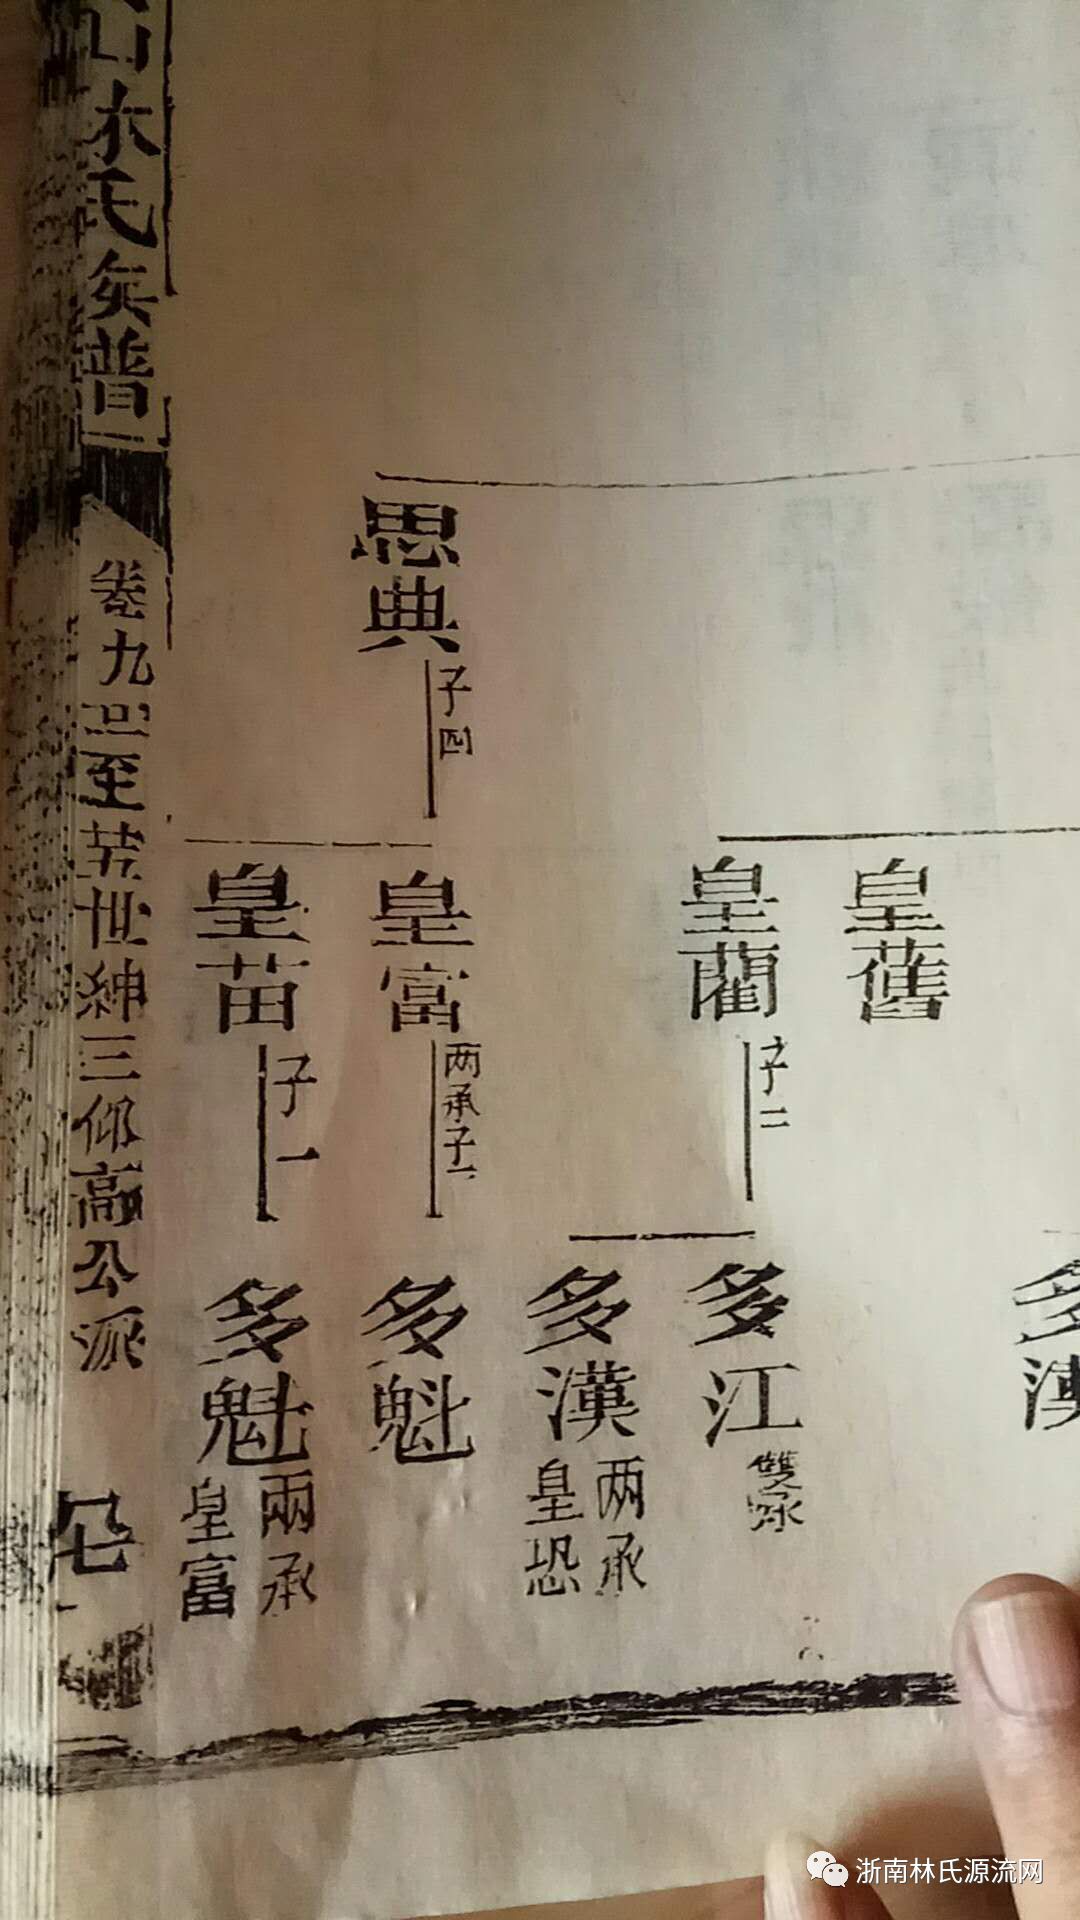 思典
子四
皇舊
皇藺
子二
皇富
两承子一
皇苗
子一
多江
雙承
多漢
两承
皇恐
多魁
多魁
兩承
皇富
氏族譜
卷九
至
世紳三仰高公派
浙南林氏源流网